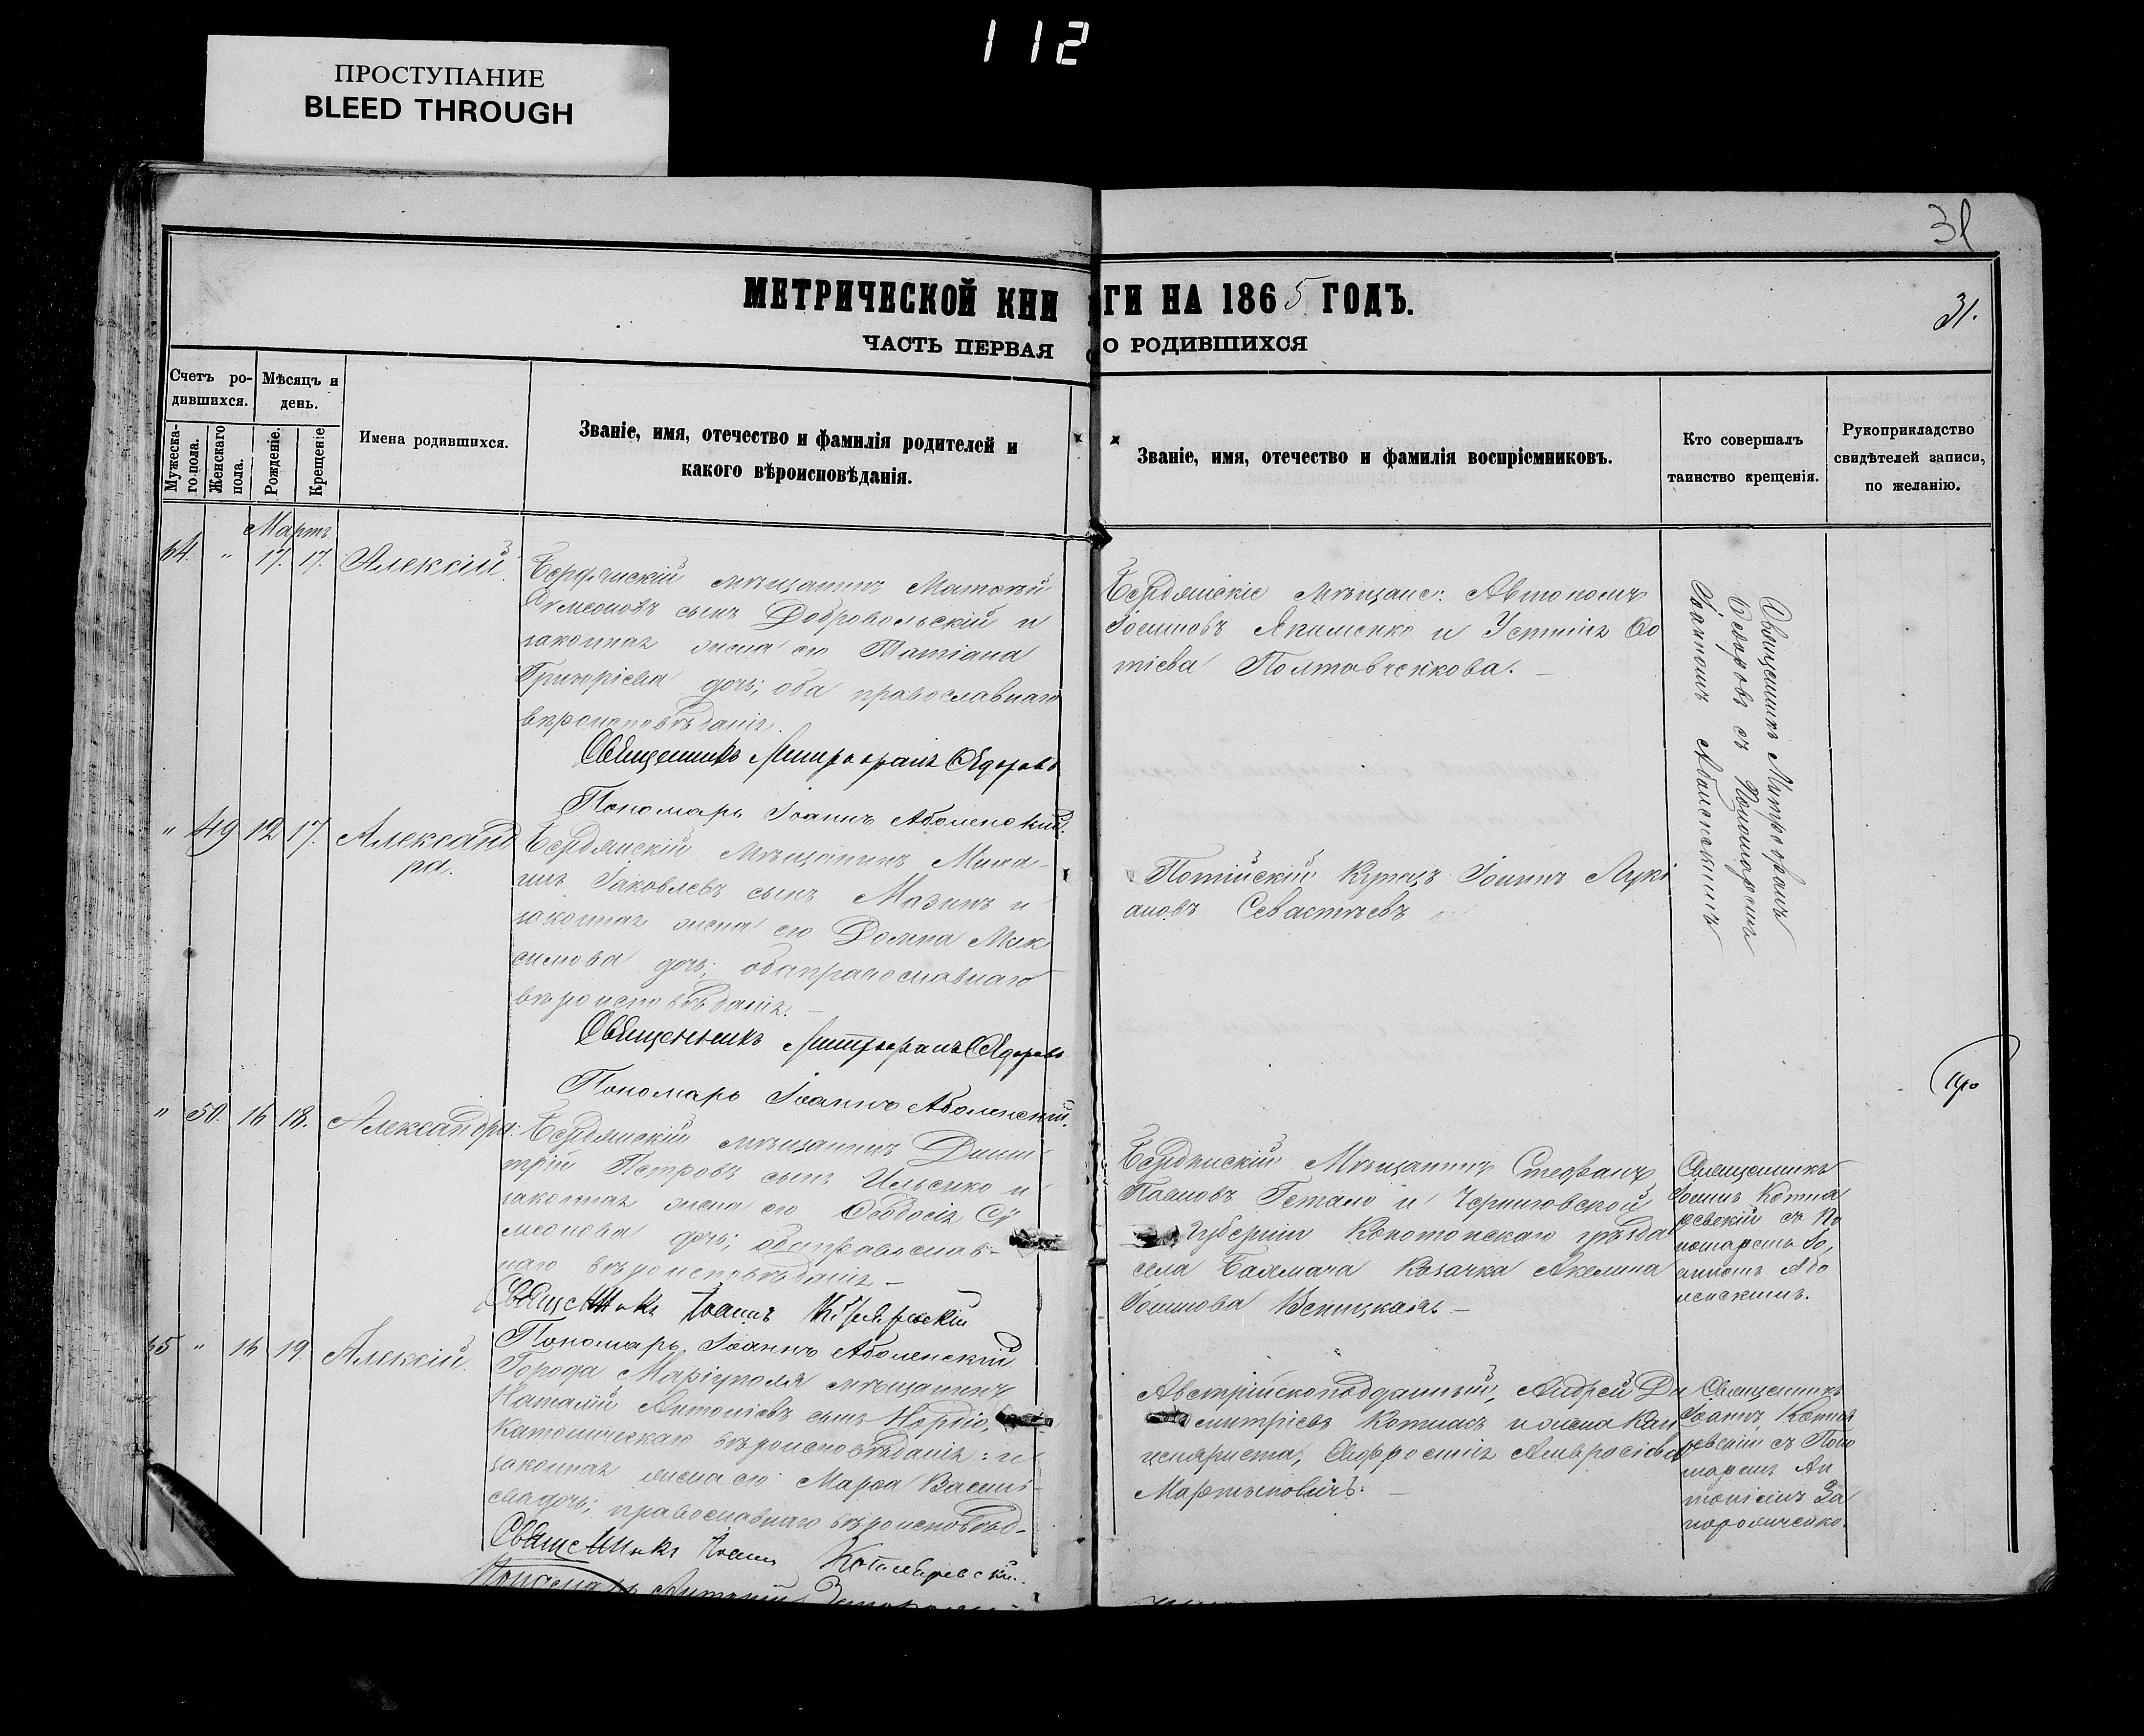 112
ПРОСТУПАНИЕ
BLEED THROUGH
31
31.
МЕТРИЧЕСКОЙ КНИГИ НА 1865 ГОДЪ.
ЧАСТЬ ПЕРВАЯ О РОДИВШИХСЯ
Счетъ ро-
дившихся.
Мѣсяцъ и
день.
Мужеска-
го пола.
Женскаго
пола.
Рожденіе.
Крещеніе
Имена родившихся.
Званіе, имя, отечество и фамилія родителей и
какого вѣроисповѣданія.
Званіе, имя, отечество и фамилія воспріемниковъ.
Кто совершалъ
таинство крещенія.
Рукоприкладство
свидѣтелей записи,
по желанію.
Мартъ
64. " 17. 17. Алексій
Бердянскій мѣщанинъ Матвѣй
Симеоновъ сынъ Добровольскій и
законная жена его Татіана
дочь; оба православнаго
вѣроисповѣданія.
Священникъ Митрофанъ Сѣдоровъ
Пономарь Іоаннъ Аболенскій.
Бердянскіе мѣщане: Автономъ
Якименко и Устинія
Полтавченкова.
Священникъ Митрофанъ
съ Пономаремъ
Іоанномъ Аболенскимъ
" 49 12 17. Александ
ра.
Бердянскій мѣщанинъ
Іаковлевъ сынъ Мазинъ и
законная жена его Домна Мак
симова дочь; оба православнаго
вѣроисповѣданія.
Священникъ Митрофанъ Сѣдоровъ
Пономарь Іоаннъ Аболенскій.
Купецъ Іоаннъ Лукі
ановъ Севастьевъ
" 50. 16 18. Александра.
Бердянскій мѣщанинъ Дими-
трій Петровъ сынъ Ильенко и
законная жена его Ѳеодосія Си
меонова дочь; оба православ-
наго вѣроисповѣданія
Священникъ Іоаннъ Котляревскій
Пономарь Іоаннъ Аболенскій
Бердянскій Мѣщанинъ Стефанъ
и Черниговской
губерніи Конотопскаго уѣзда
села Казачка Акелина
Іоаннова
Священникъ
Іоаннъ Котля
ревскій съ По
номаремъ Іо
анномъ Або
ленскимъ.
65 " 16 19. Алексій.
Города Маріуполя мѣщанинъ
Антоніевъ сынъ
католическаго вѣроисповѣданія: и
законная жена его Марѳа Василі-
ева дочь; православнаго вѣроисповѣд-
Священникъ Іоаннъ Котляревскій.
Пономарь Антоній
Австрійскоподданный, Андрей Ди
митріевъ и жена Кан
целяриста, Амвросіева
Мартыновичъ.
Священникъ
Іоаннъ Котля
ревскій съ Поно
маремъ Ан
тоніемъ За